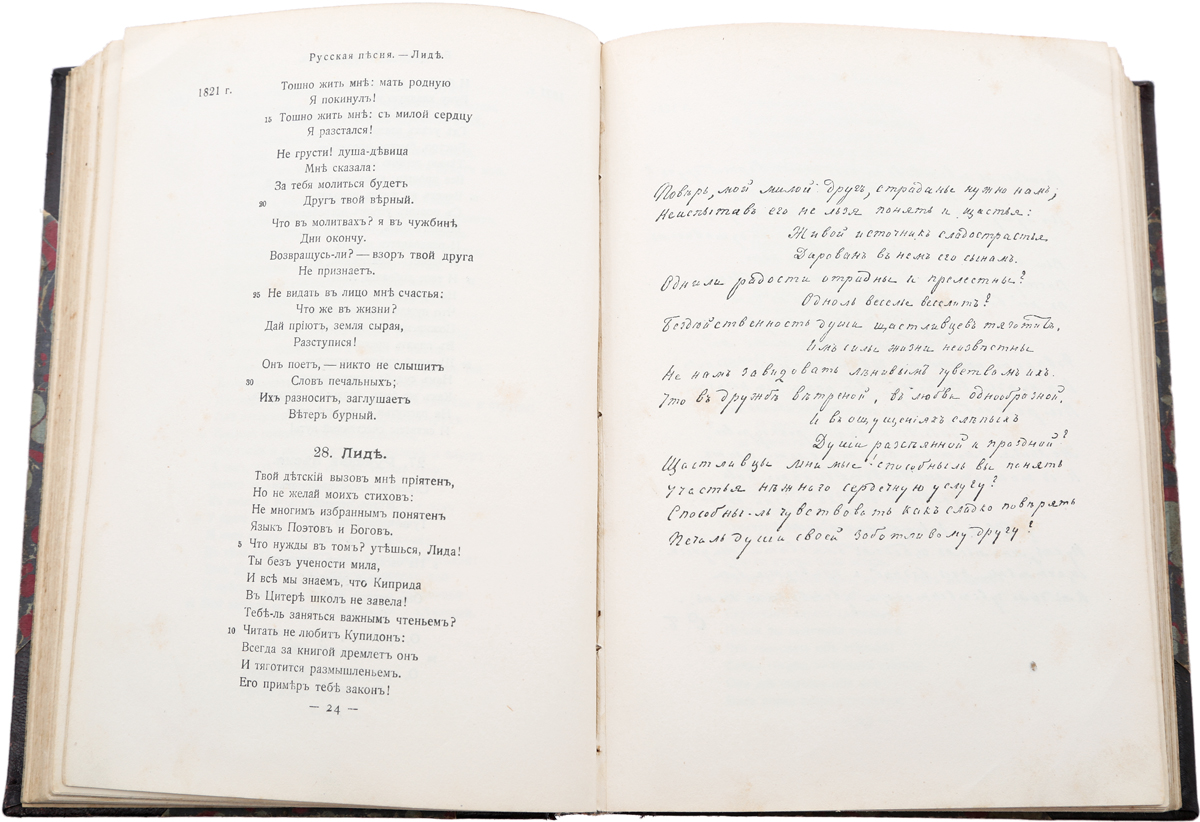 Русская пѣсня. — Лидѣ.
1821 г.
Тошно жить мнѣ: мать родную
Я покинулъ!
15 Тошно жить мнѣ: съ милой сердцу
Я разстался!
Не грусти! душа-дѣвица
Мнѣ сказала:
За тебя молиться будетъ
20 Другъ твой вѣрный.
Что въ молитвахъ? я въ чужбинѣ
Дни окончу.
Возвращусь-ли? — взоръ твой друга
Не признаетъ.
25 Не видать въ лицо мнѣ счастья:
Что же въ жизни?
Дай прiютъ, земля сырая,
Разступися!
Онъ поетъ, — никто не слышитъ
30 Словъ печальныхъ;
Ихъ разноситъ, заглушаетъ
Вѣтеръ бурный.
28. Лидѣ.
Твой дѣтскiй вызовъ мнѣ прiятенъ,
Но не желай моихъ стиховъ:
Не многимъ избраннымъ понятенъ
Языкъ Поэтовъ и Боговъ.
5 Что нужды въ томъ? утѣшься, Лида!
Ты безъ учености мила,
И всѣ мы знаемъ, что Киприда
Въ Цитерѣ школъ не завела!
Тебѣ-ль заняться важнымъ чтеньемъ?
10 Читать не любитъ Купидонъ:
Всегда за книгой дремлетъ онъ
И тяготится размышленьемъ.
Его примѣръ тебѣ законъ!
— 24 —
Повѣрь, мой милой другъ, страданье нужно намъ;
Неиспытавъ его не льзя понять и щастья:
Живой источникъ сладострастья
Дарованъ въ немъ его сынамъ.
Однили радости отрадны и прелестны?
Одноль веселье веселитъ?
Бездѣйственность души щастливцевъ тяготитъ,
Имъ силы жизни неизвѣстны
Не намъ завидовать лѣнивымъ чувствамъ ихъ.
Что въ дружбѣ вѣтреной, въ любви однообразной,
И въ ощущенiяхъ слѣпыхъ
Души разсѣянной и праздной?
Щастливцы мнимые! способныль вы понять
Участья нѣжнаго сердечную услугу?
Способны-ль чувствовать какъ сладко повѣрять
Печаль души своей заботливому другу?